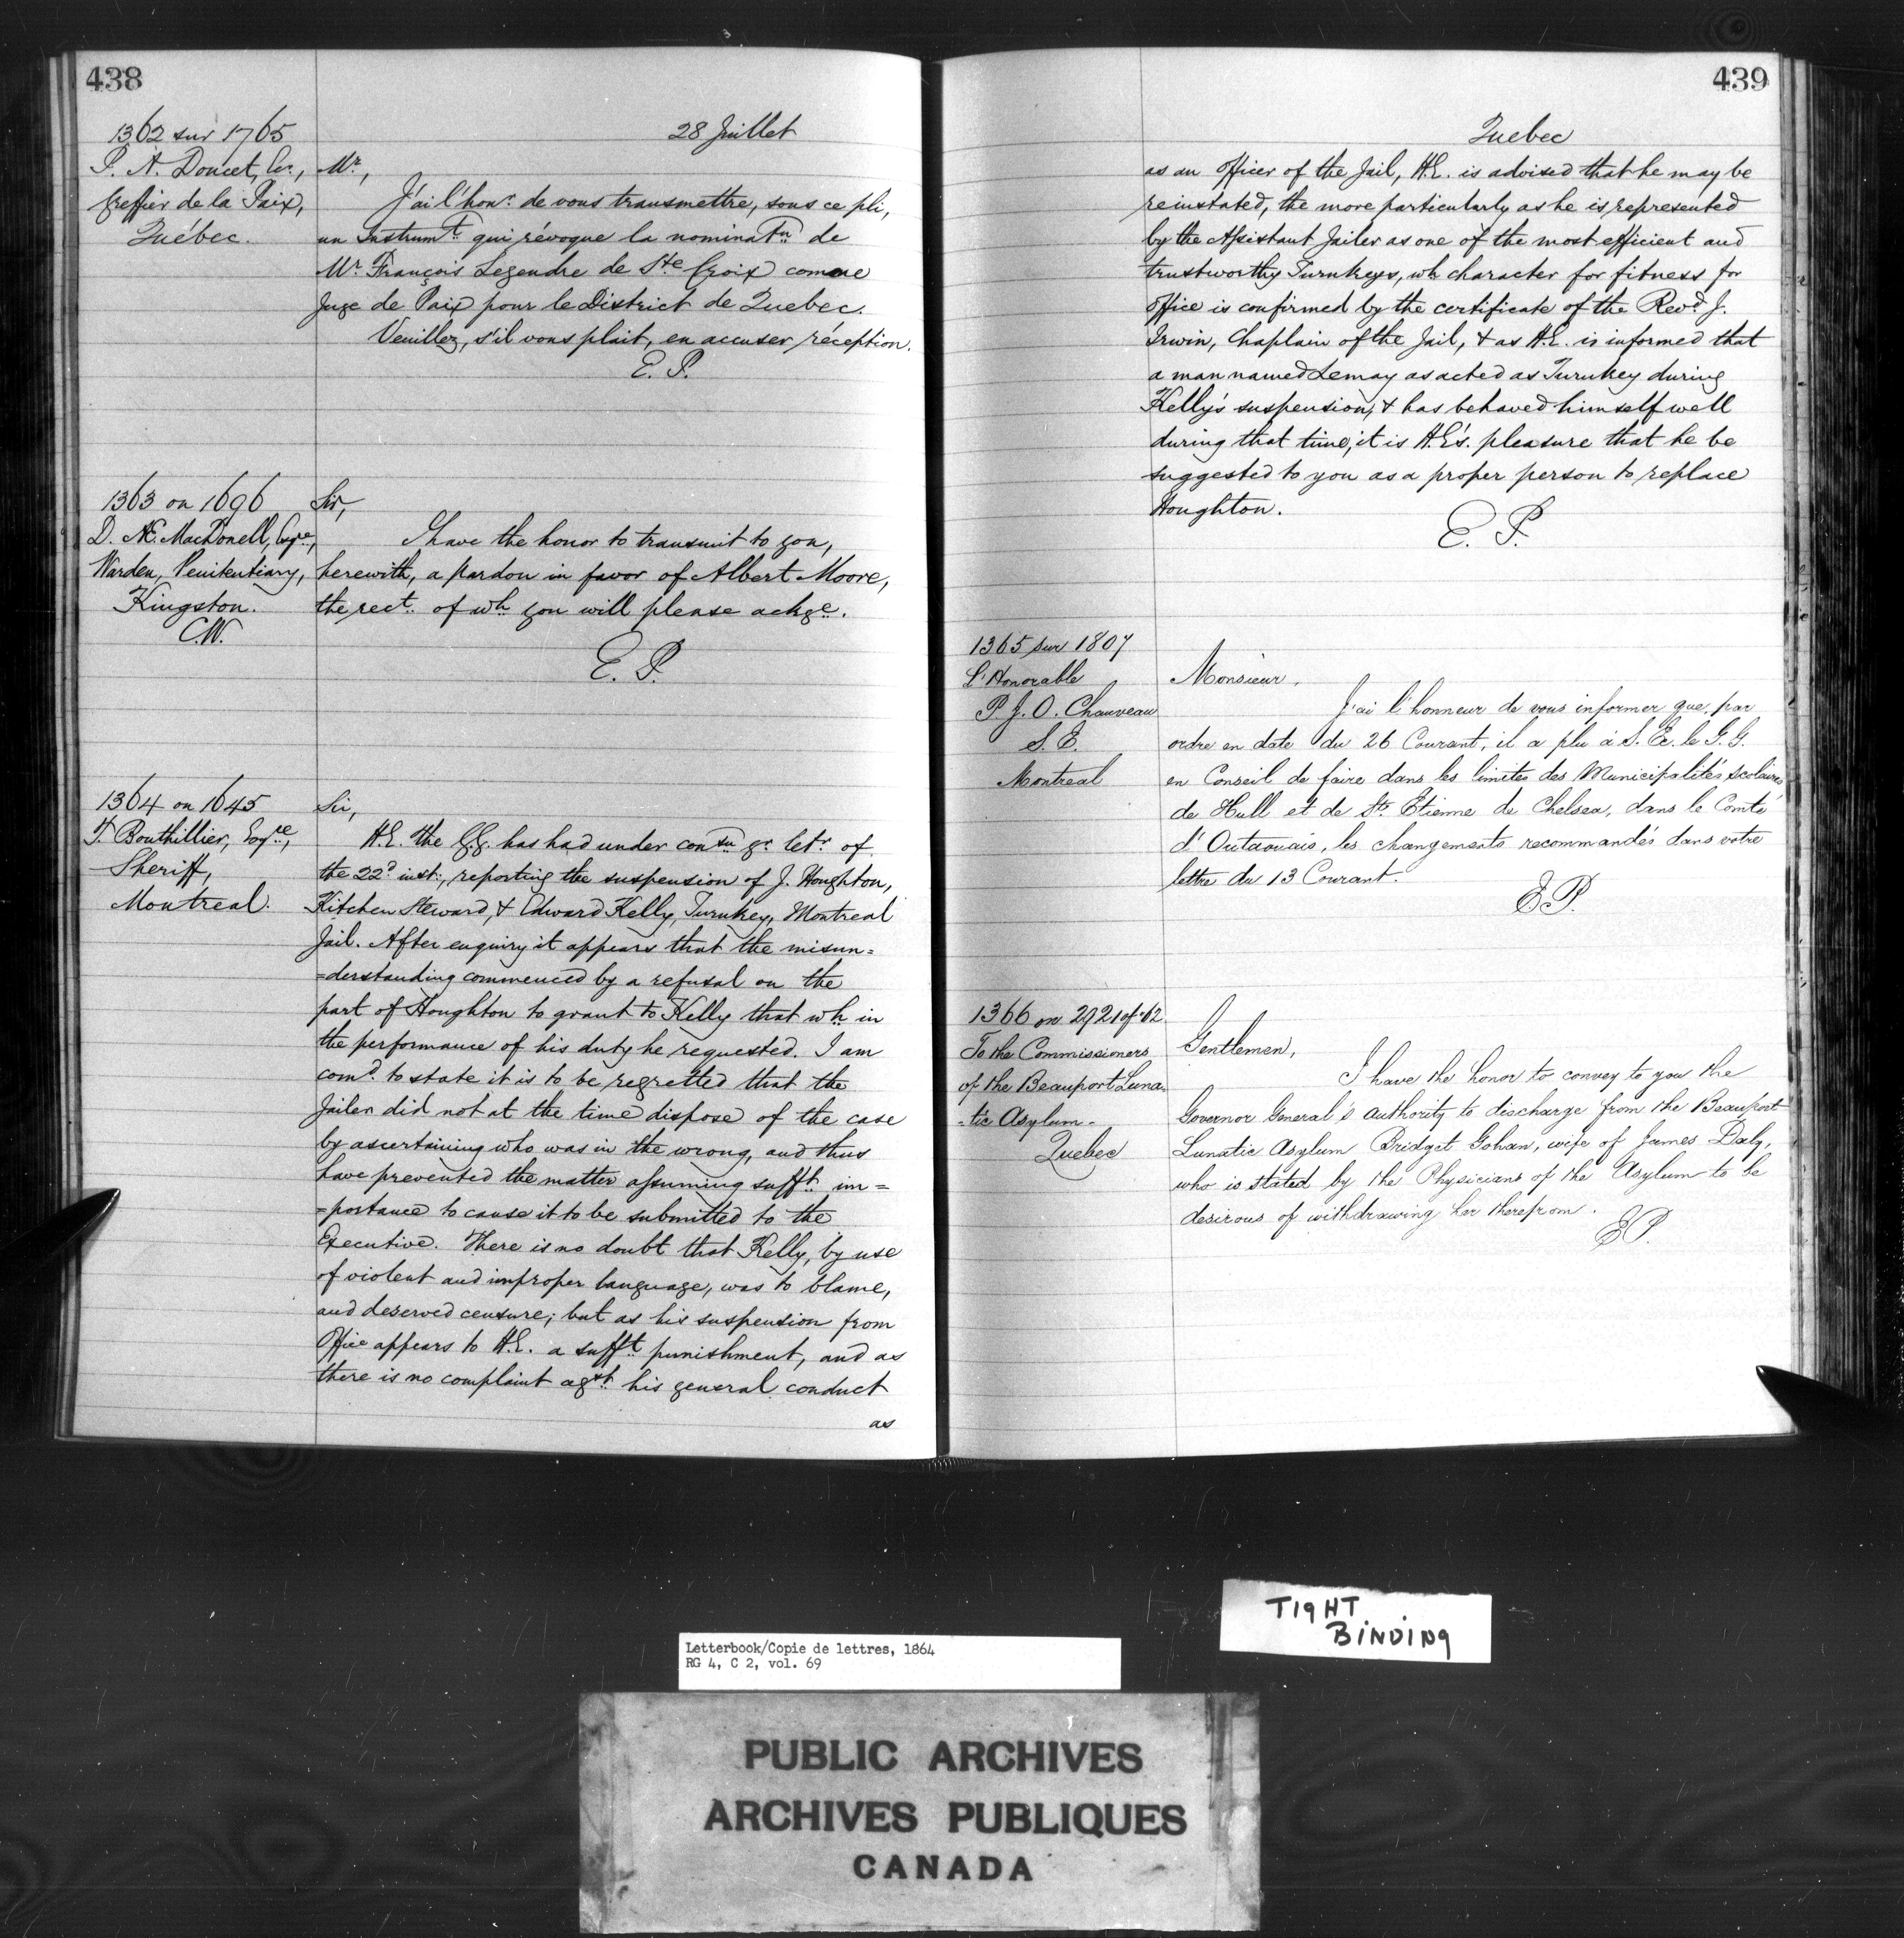 438
28 Juillet
1362 sur 1765
P. A. Doucet, Ecr.,
Greffier de la Paix,
Québec.
Mr.,
J'ai l'honr. de vous transmettre, sous ce pli,
un Instrumt. qui révoque la nominatn. de
Mr. François Legendre de Ste Croix comme
Juge de Paix pour le District de Quebec.
Veuillez, s'il vous plait, en accuser réception.
E. P.
1363 on 1696
D. Æ. MacDonell, Esqre.,
Warden, Penitentiary,
Kingston.
C.W.
Sir,
I have the honor to transmit to you,
herewith, a pardon in favor of Albert Moore,
the rect. of wh you will please ackge.
E. P.
1364 on 1645
T. Bouthillier, Esqre.,
Sheriff,
Montreal.
Sir,
H.E. the G.G. has had under consn yr letr of
the 22d. inst:, reporting the suspension of J. Houghton,
Kitchen Steward, & Edward Kelly, Turnkey, Montreal
Jail. After enquiry it appears that the misun=
=derstanding commenced by a refusal on the
part of Houghton to grant to Kelly that wh in
the performance of his duty he requested. I am
comd. to state it is to be regretted that the
Jailer did not at the time dispose of the case
by ascertaining who was in the wrong, and thus
have prevented the matter assuming sufft. im=
=portance to cause it to be submitted to the
Executive. There is no doubt that Kelly, by use
of violent and improper language, was to blame,
and deserved censure; but as his suspension from
Office appears to H.E. a sufft. punishment, and as
there is no complaint agst. his general conduct
as
439
Quebec
as an Officer of the Jail, H.E. is advised that he may be
reinstated, the more particularly as he is represented
by the Assistant Jailer as one of the most efficient and
trustworthy Turnkeys, wh character for fitness for
Office is confirmed by the certificate of the Revd. J.
Irwin, Chaplain of the Jail, & as H.E. is informed that
a man named Lemay as acted as Turnkey during
Kelly's suspension, & has behaved himself well
during that time, it is H.E's. pleasure that he be
suggested to you as a proper person to replace
Houghton.
E. P.
1365 sur 1807
L'Honorable
P. J. O. Chauveau
S. E.
Montreal
Monsieur,
J'ai l'honneur de vous informer que, par
ordre en date du 26 Courant, il a plu à S. Ec. le G. G.
en Conseil de faire dans les limites des Municipalités scolaires
de Hull et de St. Etienne de Chelsea, dans le Comté
d'Outaouais, les changements recommandés dans votre
lettre du 13 Courant.
E.P.
1366 on 2921 of '62
To the Commissioners
of the Beauport Luna-
-tic Asylum-
Quebec
Gentlemen,
I have the honor to convey to you the
Governor General's authority to discharge from the Beauport
Lunatic Asylum Bridget Gohan, wife of James Daly,
who is stated by the Physicians of the Asylum to be
desirous of withdrawing her therefrom.
E.P.
TIGHT
BINDING
Letterbook/Copie de lettres, 1864
RG 4, C 2, vol. 69
PUBLIC ARCHIVES
ARCHIVES PUBLIQUES
CANADA